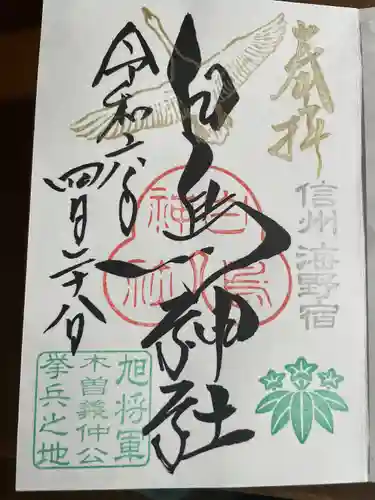 奉拝
信州 海野宿
白鳥神社
白鳥神社
令和六年四月二十八日
旭将軍
木曽義仲公
挙兵之地